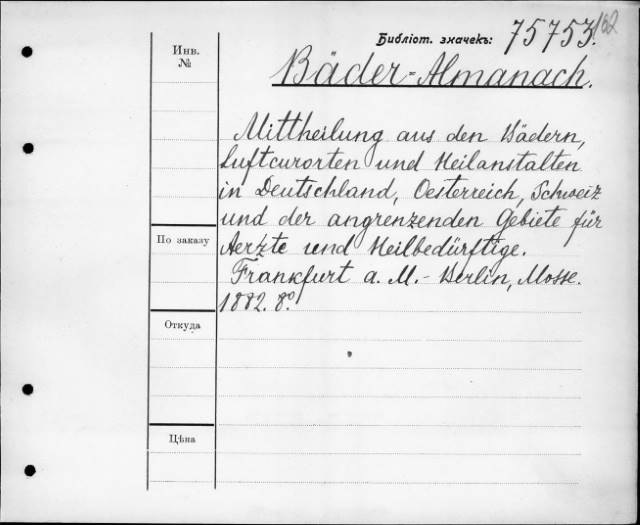 102
Библіот. значекъ: 75753.
Инв.
№
Bäder-Almanach.
Mittheilung aus den Bädern,
Luftcurorten und Heilanstalten
in Deutschland, Oesterreich, Schweiz
und der angrenzenden Gebiete für
По заказу
Aerzte und Heilbedürftige.
Frankfurt a. M.- Berlin, Mosse.
1882. 8º.
Откуда
Цѣна